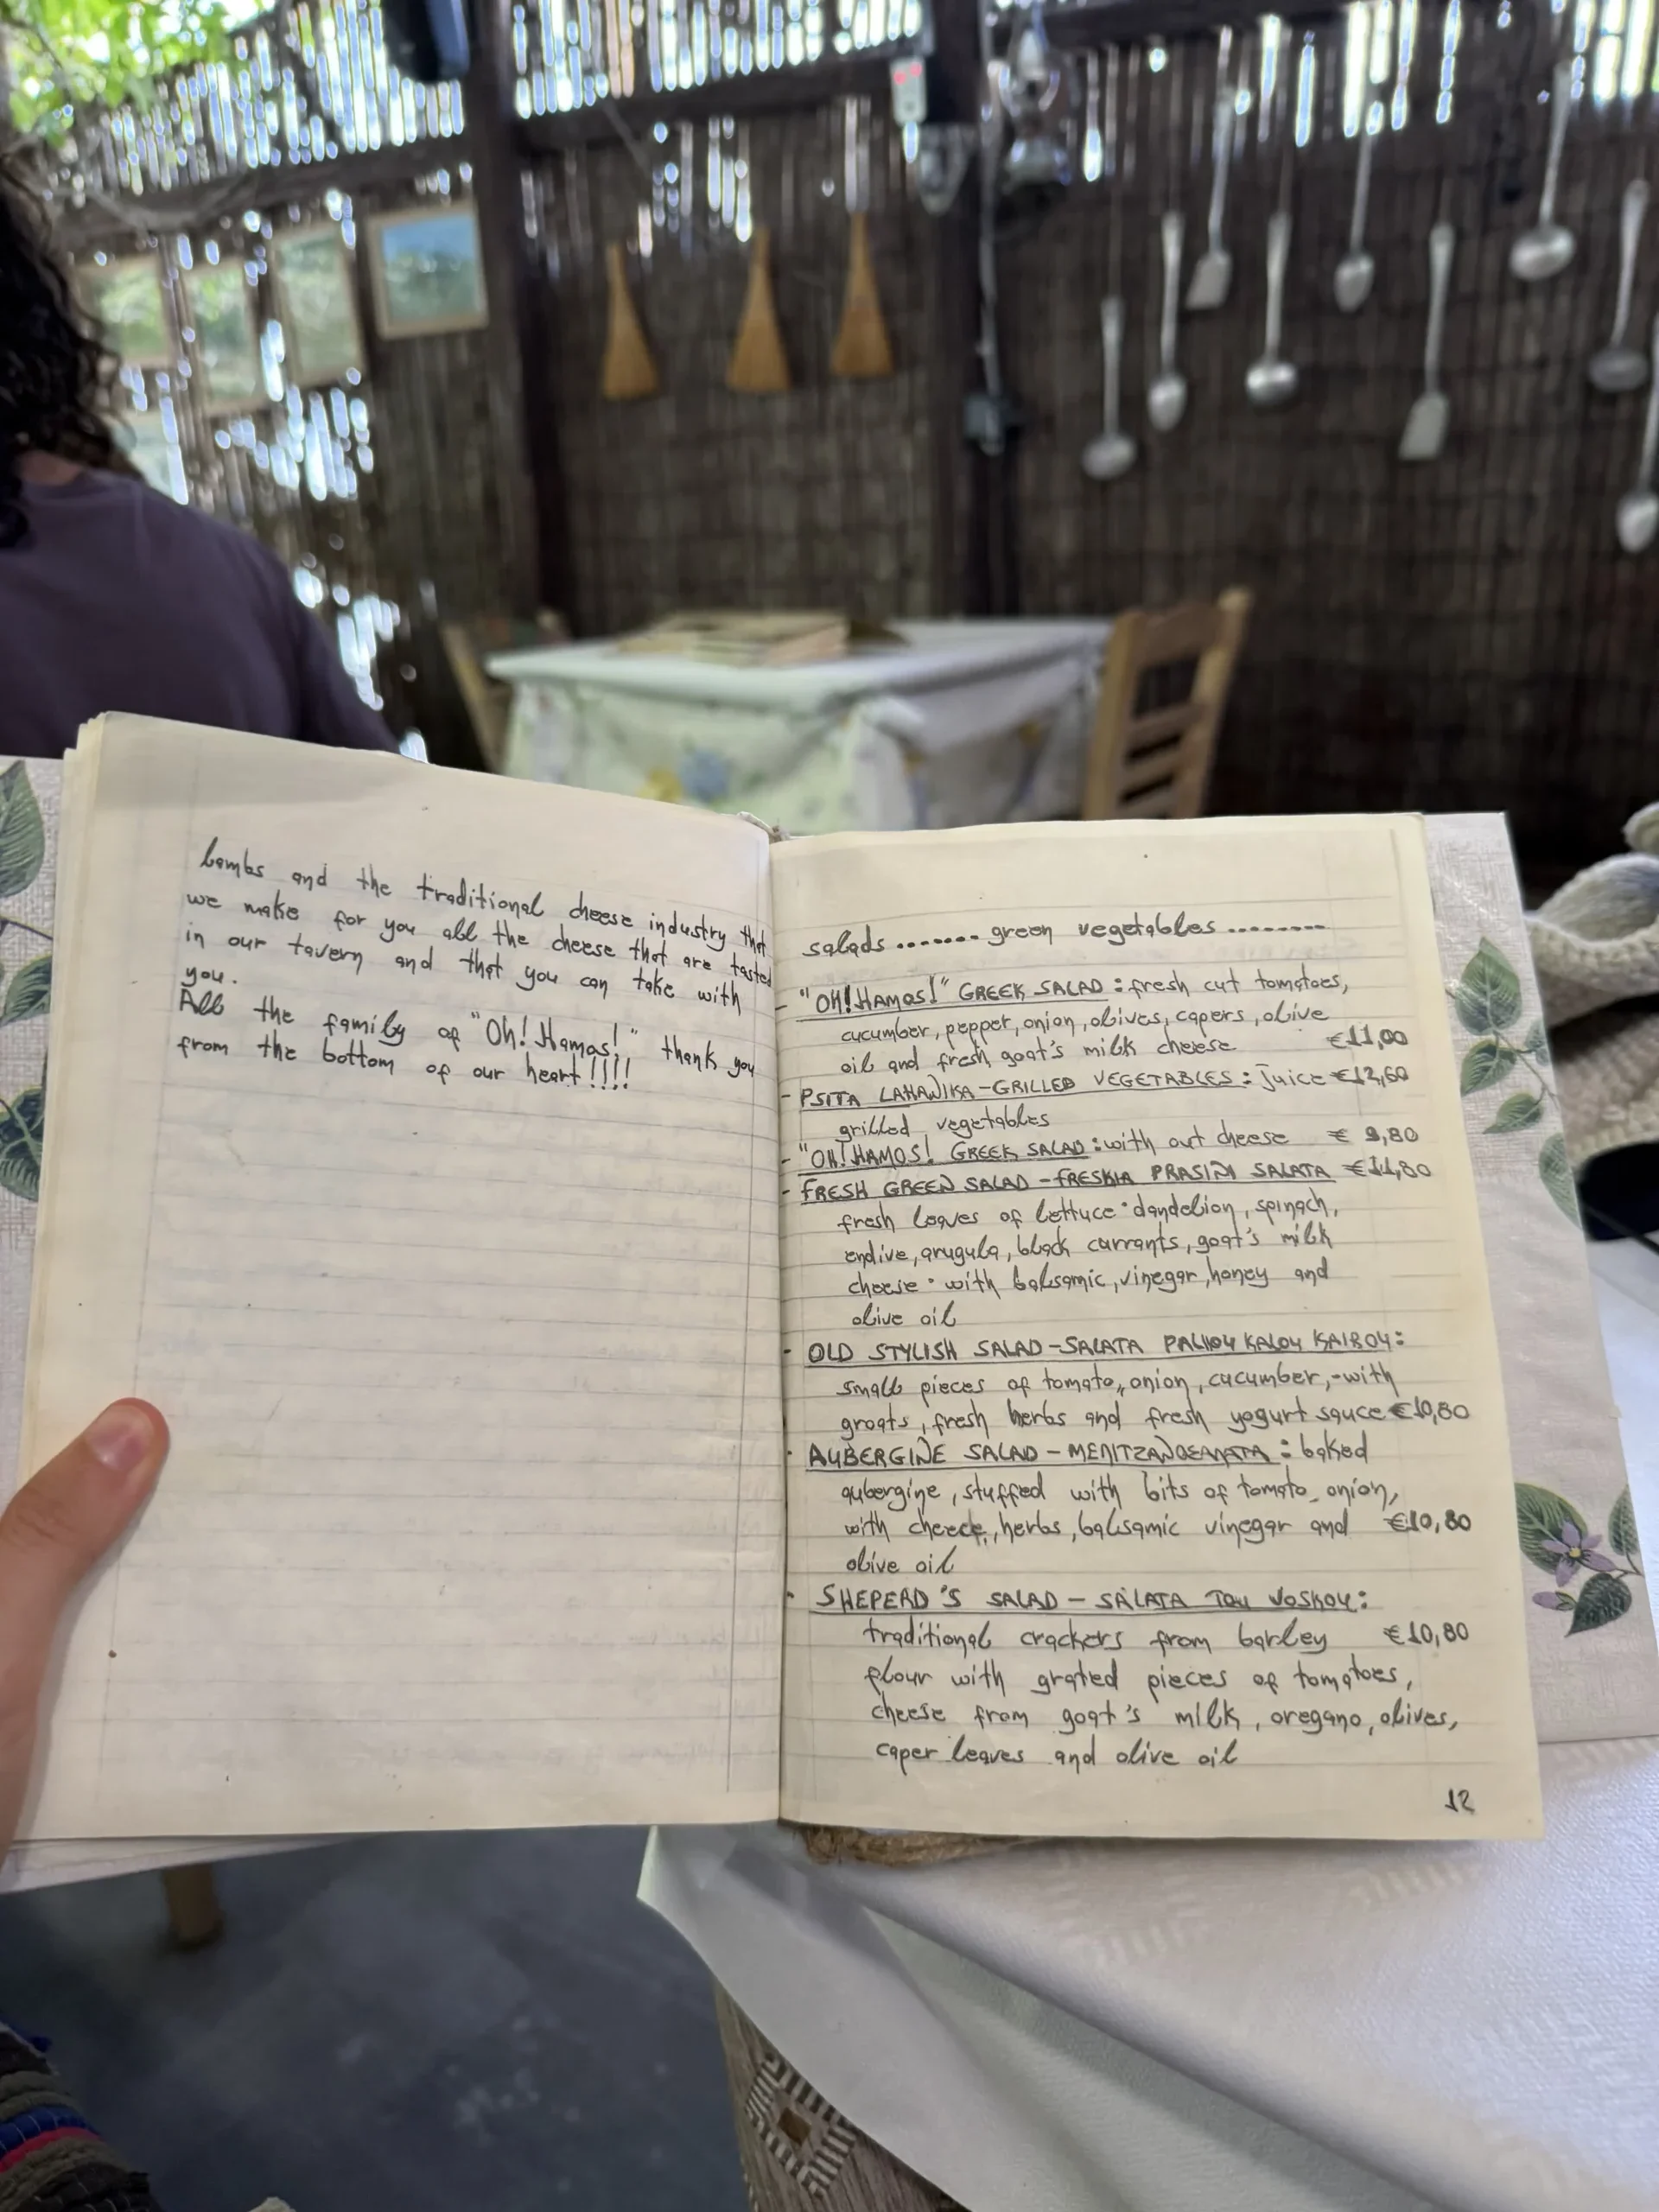 lambs and the traditional cheese industry that
we make for you all the cheese that are tasted
in our tavern and that you can take with
you.
All the family of "Oh! Hamos!" thank you
from the bottom of our heart!!!!
salads ....... green vegetables ........
- "OH! HAMOS!" GREEK SALAD : fresh cut tomatoes,
cucumber, pepper, onion, olives, capers, olive
oil and fresh goat's milk cheese €11,00
- PSITA LAHANIKA - GRILLED VEGETABLES : juice €12,60
grilled vegetables
- "OH! HAMOS! GREEK SALAD : with out cheese € 9,80
- FRESH GREEN SALAD - FRESKIA PRASINI SALATA €11,80
fresh leaves of lettuce · dandelion, spinach,
endive, arugula, black currants, goat's milk
cheese · with balsamic, vinegar, honey and
olive oil
- OLD STYLISH SALAD - SALATA PALIOY KALOY KAIROY :
small pieces of tomato, onion, cucumber, - with
groats, fresh herbs and fresh yogurt sauce €10,80
- AUBERGINE SALAD - : baked
aubergine, stuffed with bits of tomato - onion,
with cheece, herbs, balsamic vinegar and €10,80
olive oil
- SHEPERD'S SALAD - SALATA TOU VOSKOY :
traditional crackers from barley €10,80
flour with grated pieces of tomatoes,
cheese from goat's milk, oregano, olives,
caper leaves and olive oil
12